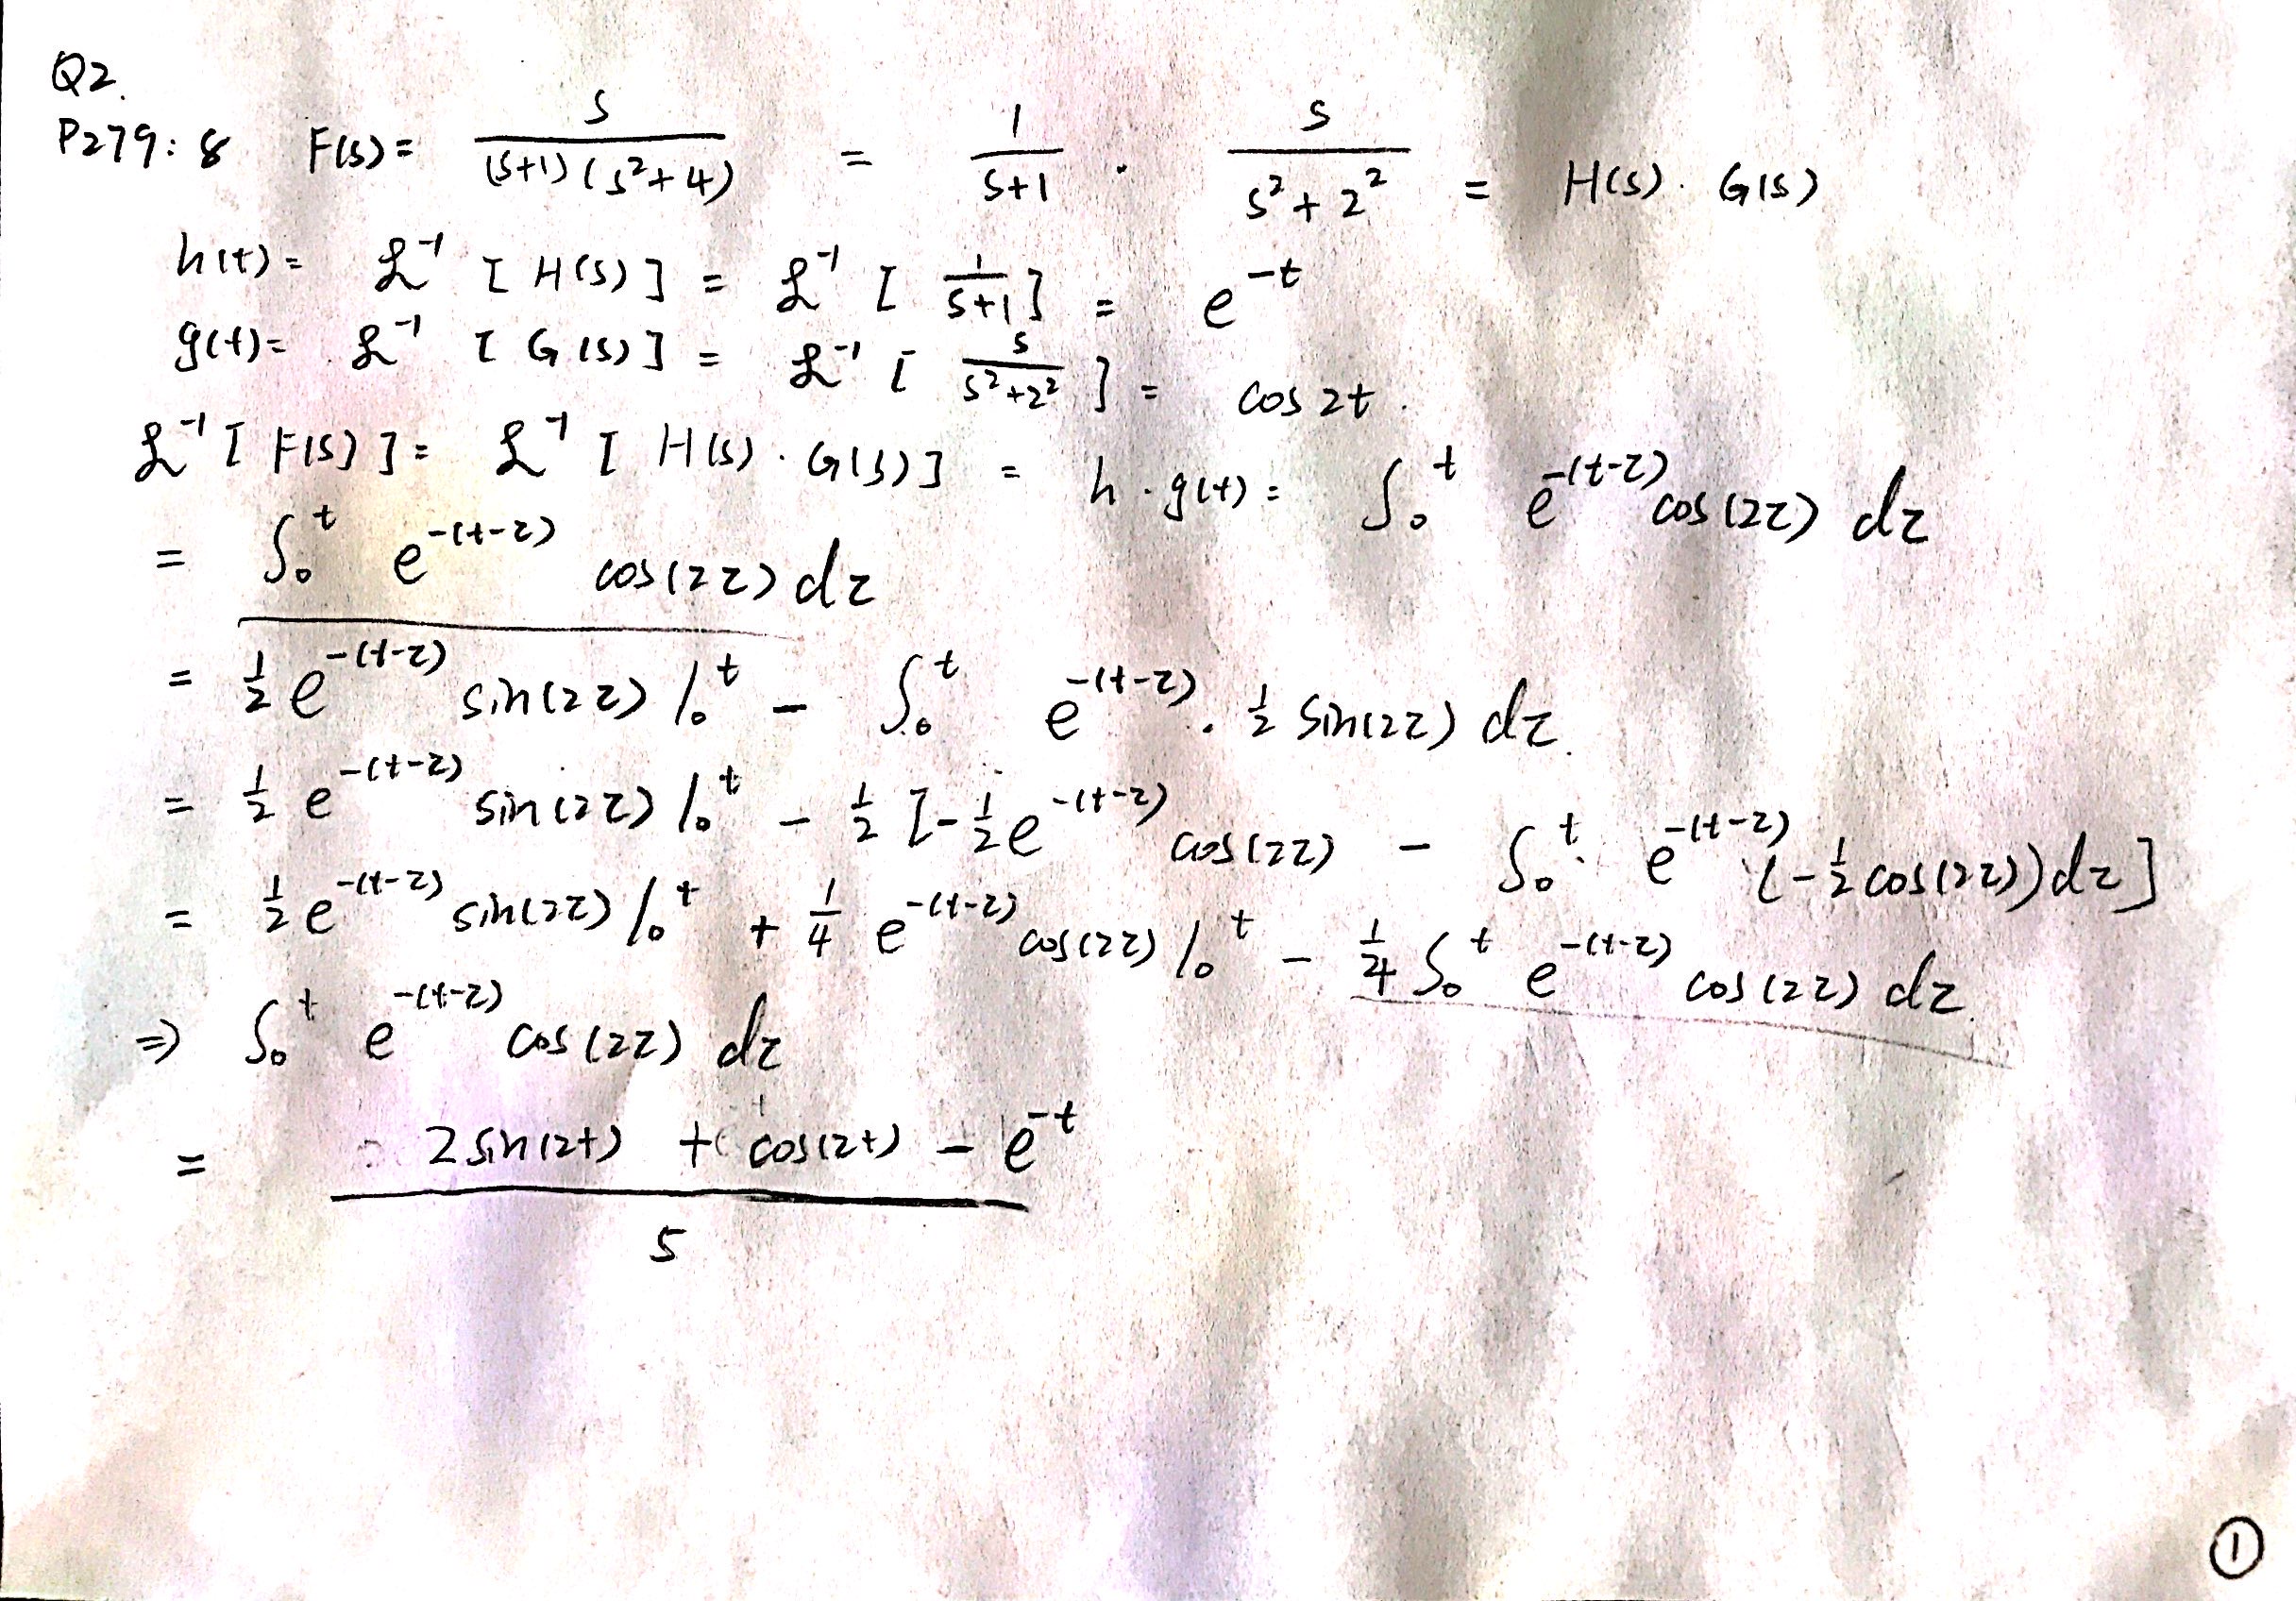 Q2.
P279: 8 F(s) = s/((s+1)(s²+4)) = 1/(s+1) · s/(s²+2²) = H(s) · G(s)
h(t) = ℒ⁻¹ [H(s)] = ℒ⁻¹ [1/(s+1)] = e^(-t)
g(t) = ℒ⁻¹ [G(s)] = ℒ⁻¹ [s/(s²+2²)] = cos 2t.
ℒ⁻¹ [F(s)] = ℒ⁻¹ [H(s) · G(s)] = h · g(t) = ∫₀^t e^(-(t-τ)) cos(2τ) dτ
= ∫₀^t e^(-(t-τ)) cos(2τ) dτ
= 1/2 e^(-(t-τ)) sin(2τ) |₀^t - ∫₀^t e^(-(t-τ)) · 1/2 sin(2τ) dτ.
= 1/2 e^(-(t-τ)) sin(2τ) |₀^t - 1/2 [-1/2 e^(-(t-τ)) cos(2τ) - ∫₀^t e^(-(t-τ)) (-1/2 cos(2τ)) dτ]
= 1/2 e^(-(t-τ)) sin(2τ) |₀^t + 1/4 e^(-(t-τ)) cos(2τ) |₀^t - 1/4 ∫₀^t e^(-(t-τ)) cos(2τ) dτ.
⇒ ∫₀^t e^(-(t-τ)) cos(2τ) dτ
= (2 sin(2t) + cos(2t) - e^(-t))/5
①